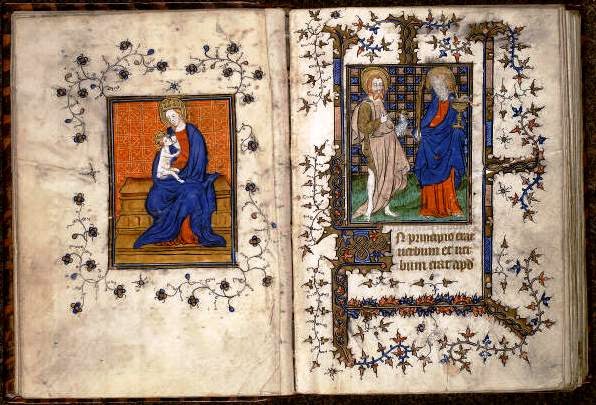 In principio erat
verbum et ver
bum erat apd